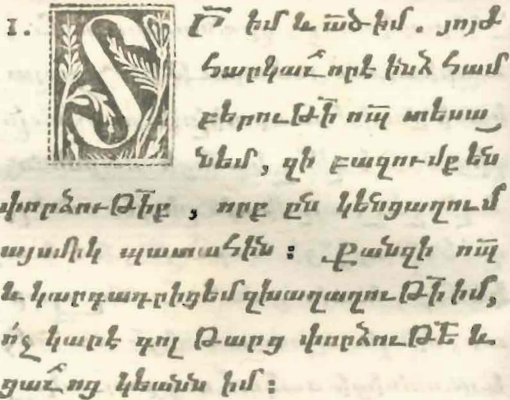 1. ՏՐ̃ իմ և ա̃ծ իմ . յոյժ
հարկաւ̃որէ ինձ համ
բերութի̃ ո̃պ տեսա
նեմ , զի բազումք են
փորձութի̃ք , որք ըն կենցաղումս
այսմիկ պատահին : Քանզի ո̃պ
և կարգադրիցեմ զխաղաղութի̃ իմ,
ո՛չ կարէ գոլ թարց փորձութե̃ և
ցաւ̃ոց կեանս իմ :